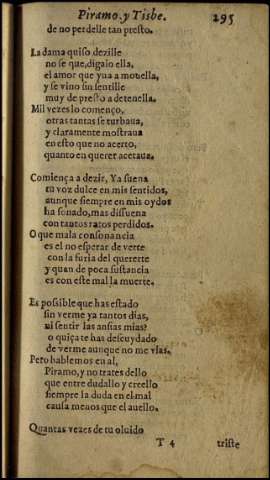 Piramo, y Tisbe. 295
de no perdelle tan presto.
La dama quiso dezille
no se que, digalo ella,
el amor que yua a mouella,
y se vino sin sentille
muy de presto a detenella.
Mil vezes lo començo,
otras tantas se turbaua,
y claramente mostraua
en esto que no acerto,
quanto en querer acetaua.
Comiença a dezir, Ya suena
tu voz dulce en mis sentidos,
aunque siempre en mis oydos
ha sonado, mas dissuena
con tantos ratos perdidos.
O que mala consonancia
es el no esperar de verte
con la furia del quererte
y quan de poca sustancia
es con este mal la muerte.
Es possible que has estado
sin verme ya tantos dias,
ni sentir las ansias mias?
o quiça te has descuydado
de verme aunque no me vias.
Pero hablemos en al,
Piramo, y no trates dello
que entre dudallo y creello
siempre la duda en el mal
causa menos que el auello.
Quantas vezes de tu oluido
T 4 triste